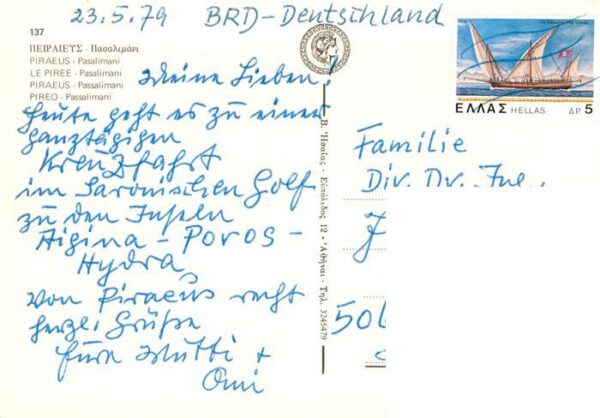 23.5.79 BRD-Deutschland
137
ΠΕΙΡΑΙΕΥΣ - Πασαλιμάνι
PIRAEUS - Pasalimani
LE PIREE - Pasalimani
PIRÄUS - Passalimani
PIREO - Passalimani
Meine Lieben,
heute geht es zu einer
ganztägigen
Kreuzfahrt
im Saronischen Golf
zu den Inseln
Aigina - Poros -
Hydra,
von Piraeus recht
herzl. Grüße
Eure Mutti +
Omi
Β. Ησαΐας - Ευπόλιδος 12 - Ἀθῆναι - Τηλ. 3245479
ΕΛΛΑΣ HELLAS ΔΡ 5
Familie
Div. Dr. Ing.
J
50